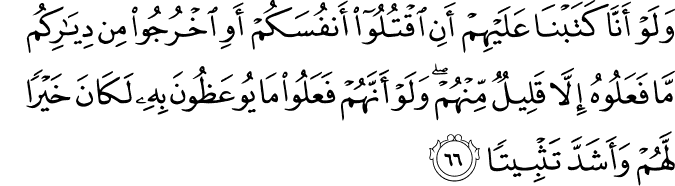 وَلَوۡ أَنَّا كَتَبۡنَا عَلَيۡهِمۡ أَنِ ٱقۡتُلُوٓاْ أَنفُسَكُمۡ أَوِ ٱخۡرُجُواْ مِن دِيَٰرِكُم
مَّا فَعَلُوهُ إِلَّا قَلِيلٞ مِّنۡهُمۡۖ وَلَوۡ أَنَّهُمۡ فَعَلُواْ مَا يُوعَظُونَ بِهِۦ لَكَانَ خَيۡرٗا
لَّهُمۡ وَأَشَدَّ تَثۡبِيتٗا ٦٦